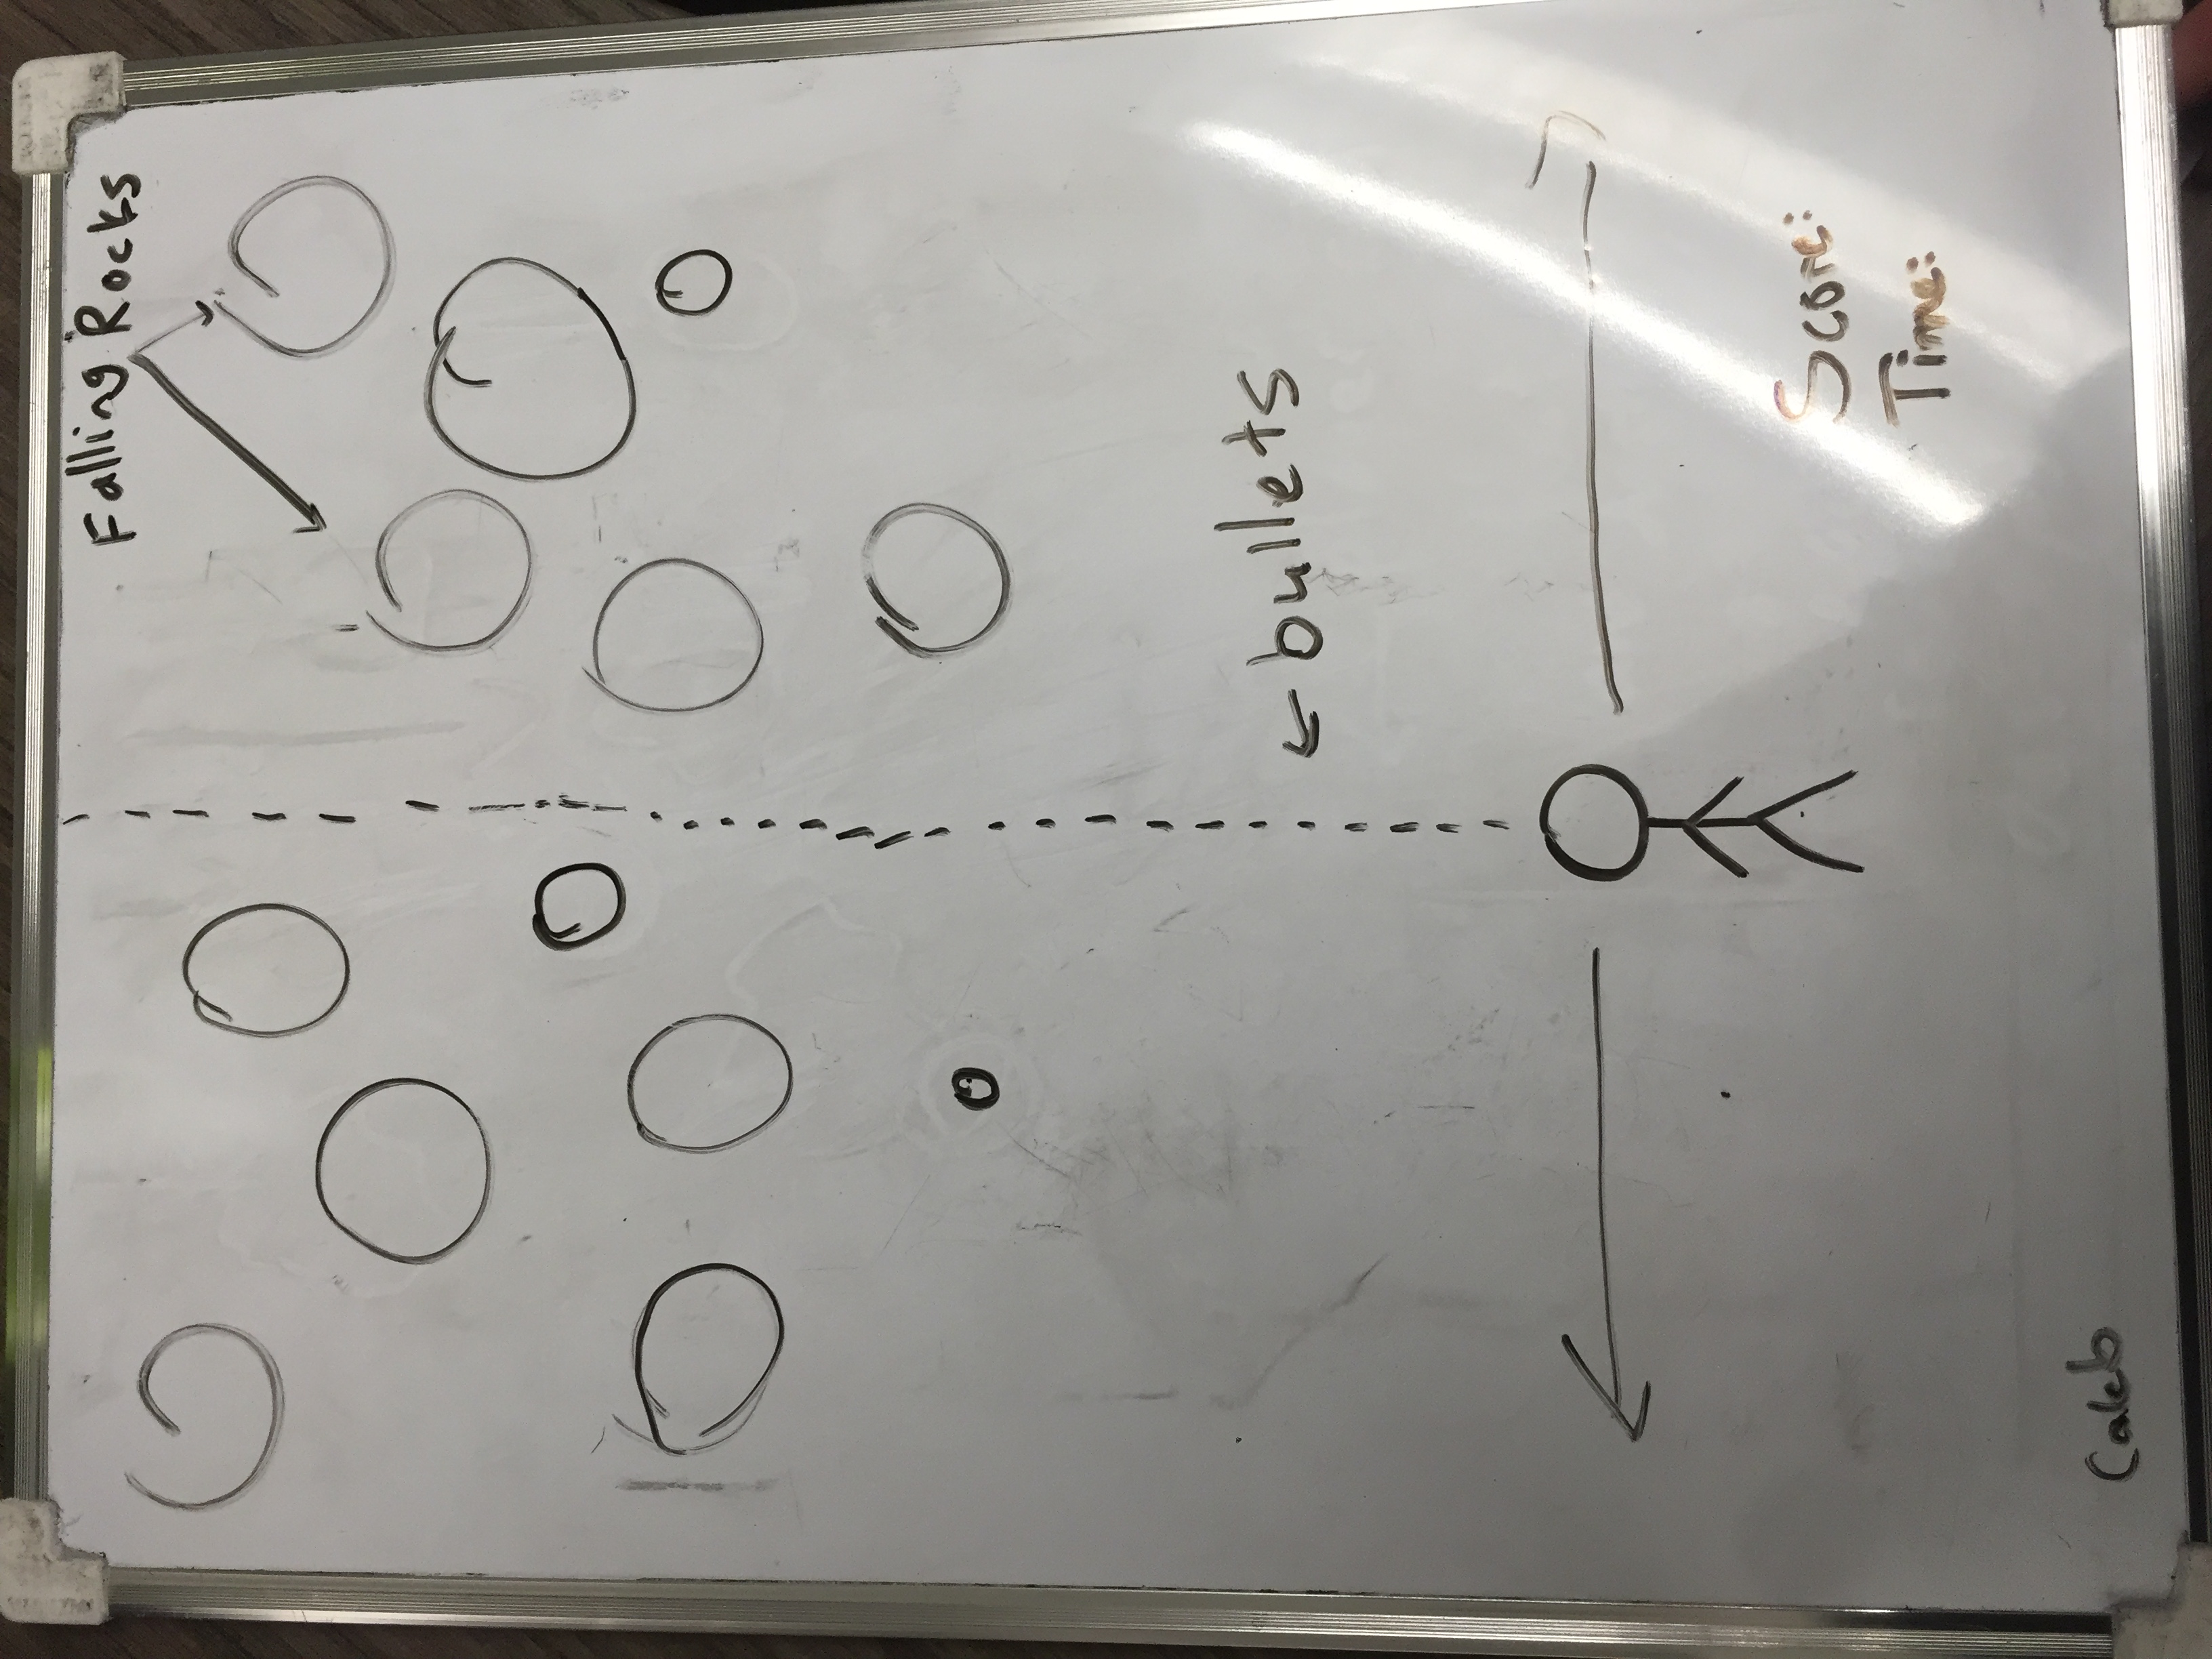 Falling Rocks
bullets
Score:
Time:
Caleb